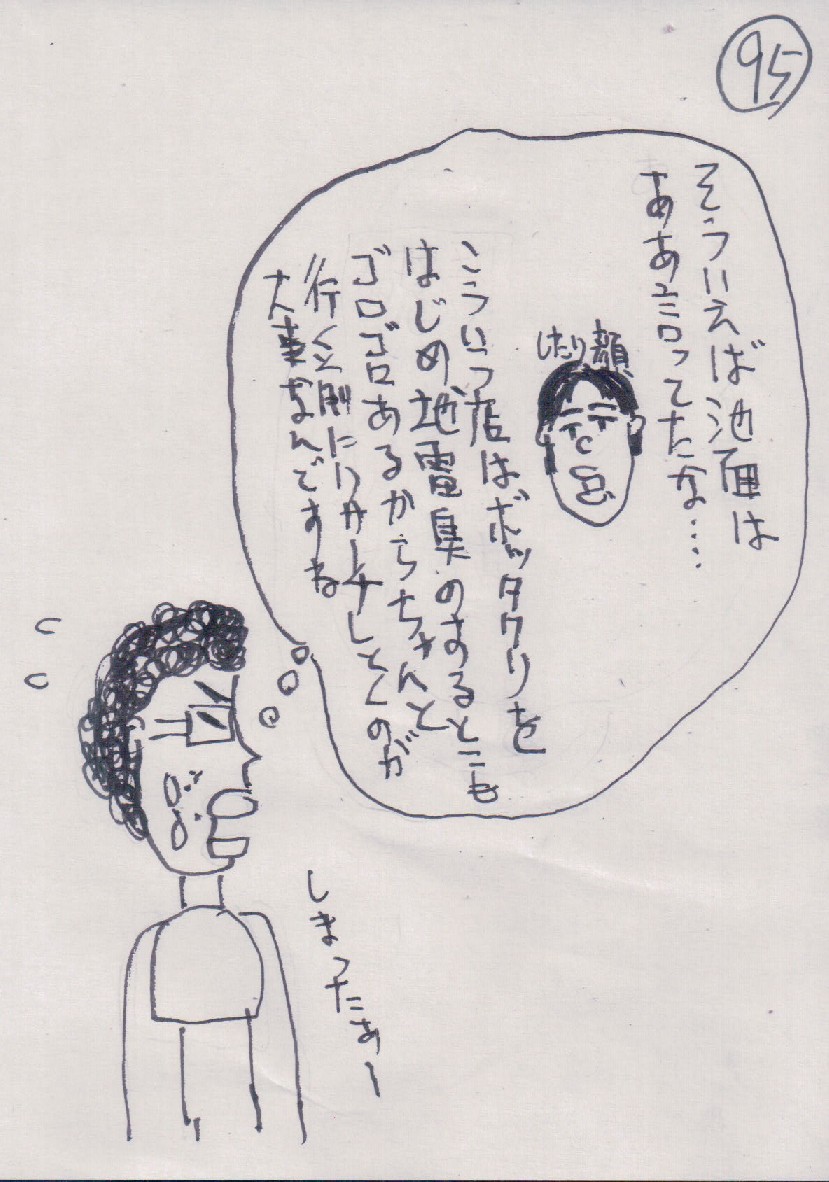 95
そういえば池面は
ああ言ってたな‥‥
したり顔
こういう店はボッタクリを
はじめ地雷臭のするとこも
ゴロゴロあるからちゃんと
行く前にリサーチしとくのが
大事なんですよね
しまったあー